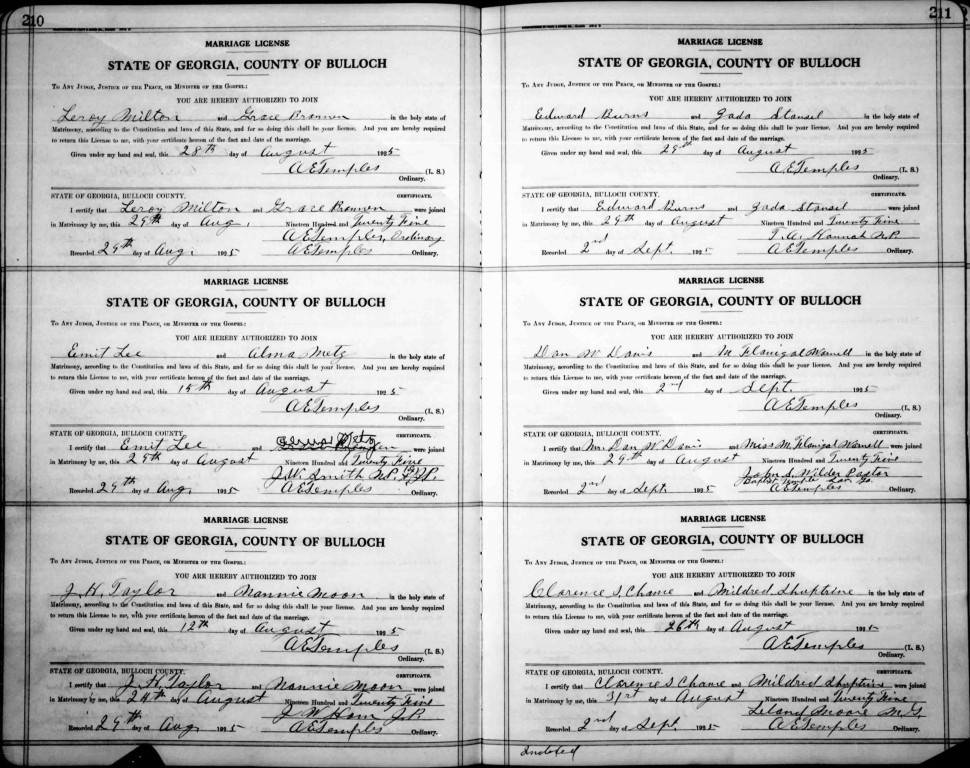 210
MARRIAGE LICENSE
STATE OF GEORGIA, COUNTY OF BULLOCH
To Any Judge, Justice of the Peace, or Minister of the Gospel:
YOU ARE HEREBY AUTHORIZED TO JOIN
Leroy Milton and Grace Brannen in the holy state of
Matrimony, according to the Constitution and laws of this State, and for so doing this shall be your license. And you are hereby required
to return this License to me, with your certificate hereon of the fact and date of the marriage.
Given under my hand and seal, this 28th day of August 1925
A E Temples (L. S.)
Ordinary.
STATE OF GEORGIA, BULLOCH COUNTY. CERTIFICATE.
I certify that Leroy Milton and Grace Brannen were joined
in Matrimony by me, this 29th day of Aug. Nineteen Hundred and Twenty Five
A E Temples, Ordinary
Recorded 29th day of Aug. 1925 A E Temples Ordinary.
MARRIAGE LICENSE
STATE OF GEORGIA, COUNTY OF BULLOCH
To Any Judge, Justice of the Peace, or Minister of the Gospel:
YOU ARE HEREBY AUTHORIZED TO JOIN
Emit Lee and Alma Metz in the holy state of
Matrimony, according to the Constitution and laws of this State, and for so doing this shall be your license. And you are hereby required
to return this License to me, with your certificate hereon of the fact and date of the marriage.
Given under my hand and seal, this 15th day of August 1925
A E Temples (L. S.)
Ordinary.
STATE OF GEORGIA, BULLOCH COUNTY. CERTIFICATE.
I certify that Emit Lee and Alma Metz were joined
in Matrimony by me, this 28th day of August Nineteen Hundred and Twenty Five
J. W. Smith N.P. & J.P.
Recorded 29th day of Aug. 1925 A E Temples Ordinary.
MARRIAGE LICENSE
STATE OF GEORGIA, COUNTY OF BULLOCH
To Any Judge, Justice of the Peace, or Minister of the Gospel:
YOU ARE HEREBY AUTHORIZED TO JOIN
J. H. Taylor and Nannie Moon in the holy state of
Matrimony, according to the Constitution and laws of this State, and for so doing this shall be your license. And you are hereby required
to return this License to me, with your certificate hereon of the fact and date of the marriage.
Given under my hand and seal, this 12th day of August 1925
A E Temples (L. S.)
Ordinary.
STATE OF GEORGIA, BULLOCH COUNTY. CERTIFICATE.
I certify that J. H. Taylor and Nannie Moon were joined
in Matrimony by me, this 24th day of August Nineteen Hundred and Twenty Five
J W Ham J.P.
Recorded 29th day of Aug. 1925 A E Temples Ordinary.
211
MARRIAGE LICENSE
STATE OF GEORGIA, COUNTY OF BULLOCH
To Any Judge, Justice of the Peace, or Minister of the Gospel:
YOU ARE HEREBY AUTHORIZED TO JOIN
Edward Burns and Gada Stansel in the holy state of
Matrimony, according to the Constitution and laws of this State, and for so doing this shall be your license. And you are hereby required
to return this License to me, with your certificate hereon of the fact and date of the marriage.
Given under my hand and seal, this 29th day of August 1925
A E Temples (L. S.)
Ordinary.
STATE OF GEORGIA, BULLOCH COUNTY. CERTIFICATE.
I certify that Edward Burns and Gada Stansel were joined
in Matrimony by me, this 29th day of August Nineteen Hundred and Twenty Five
T. A. Hannah N.P.
Recorded 2nd day of Sept. 1925 A E Temples Ordinary.
MARRIAGE LICENSE
STATE OF GEORGIA, COUNTY OF BULLOCH
To Any Judge, Justice of the Peace, or Minister of the Gospel:
YOU ARE HEREBY AUTHORIZED TO JOIN
Dan W Davis and M Flanigal Warnell in the holy state of
Matrimony, according to the Constitution and laws of this State, and for so doing this shall be your license. And you are hereby required
to return this License to me, with your certificate hereon of the fact and date of the marriage.
Given under my hand and seal, this 2nd day of Sept. 1925
A E Temples (L. S.)
Ordinary.
STATE OF GEORGIA, BULLOCH COUNTY. CERTIFICATE.
I certify that Mr. Dan W Davis and Miss M. Flanigal Warnell were joined
in Matrimony by me, this 29th day of August Nineteen Hundred and Twenty Five
John S. Wilder Pastor
Baptist Temple Sav. Ga.
Recorded 2nd day of Sept. 1925 A E Temples Ordinary.
MARRIAGE LICENSE
STATE OF GEORGIA, COUNTY OF BULLOCH
To Any Judge, Justice of the Peace, or Minister of the Gospel:
YOU ARE HEREBY AUTHORIZED TO JOIN
Clarence S. Chance and Mildred Shuptrine in the holy state of
Matrimony, according to the Constitution and laws of this State, and for so doing this shall be your license. And you are hereby required
to return this License to me, with your certificate hereon of the fact and date of the marriage.
Given under my hand and seal, this 26th day of August 1925
A E Temples (L. S.)
Ordinary.
STATE OF GEORGIA, BULLOCH COUNTY. CERTIFICATE.
I certify that Clarence S Chance and Mildred Shuptrine were joined
in Matrimony by me, this 31st day of August Nineteen Hundred and Twenty Five
Leland Moore M.G.
Recorded 2nd day of Sept. 1925 A E Temples Ordinary.